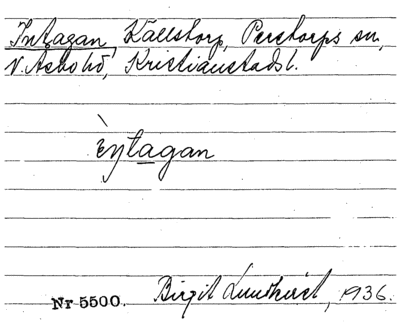 Intagan, Källstorp, Perstorps sn,
V. Asbo hd, Kristianstads l.
ìntagan
Nr 5500. Birgit Lundkvist, 1936.